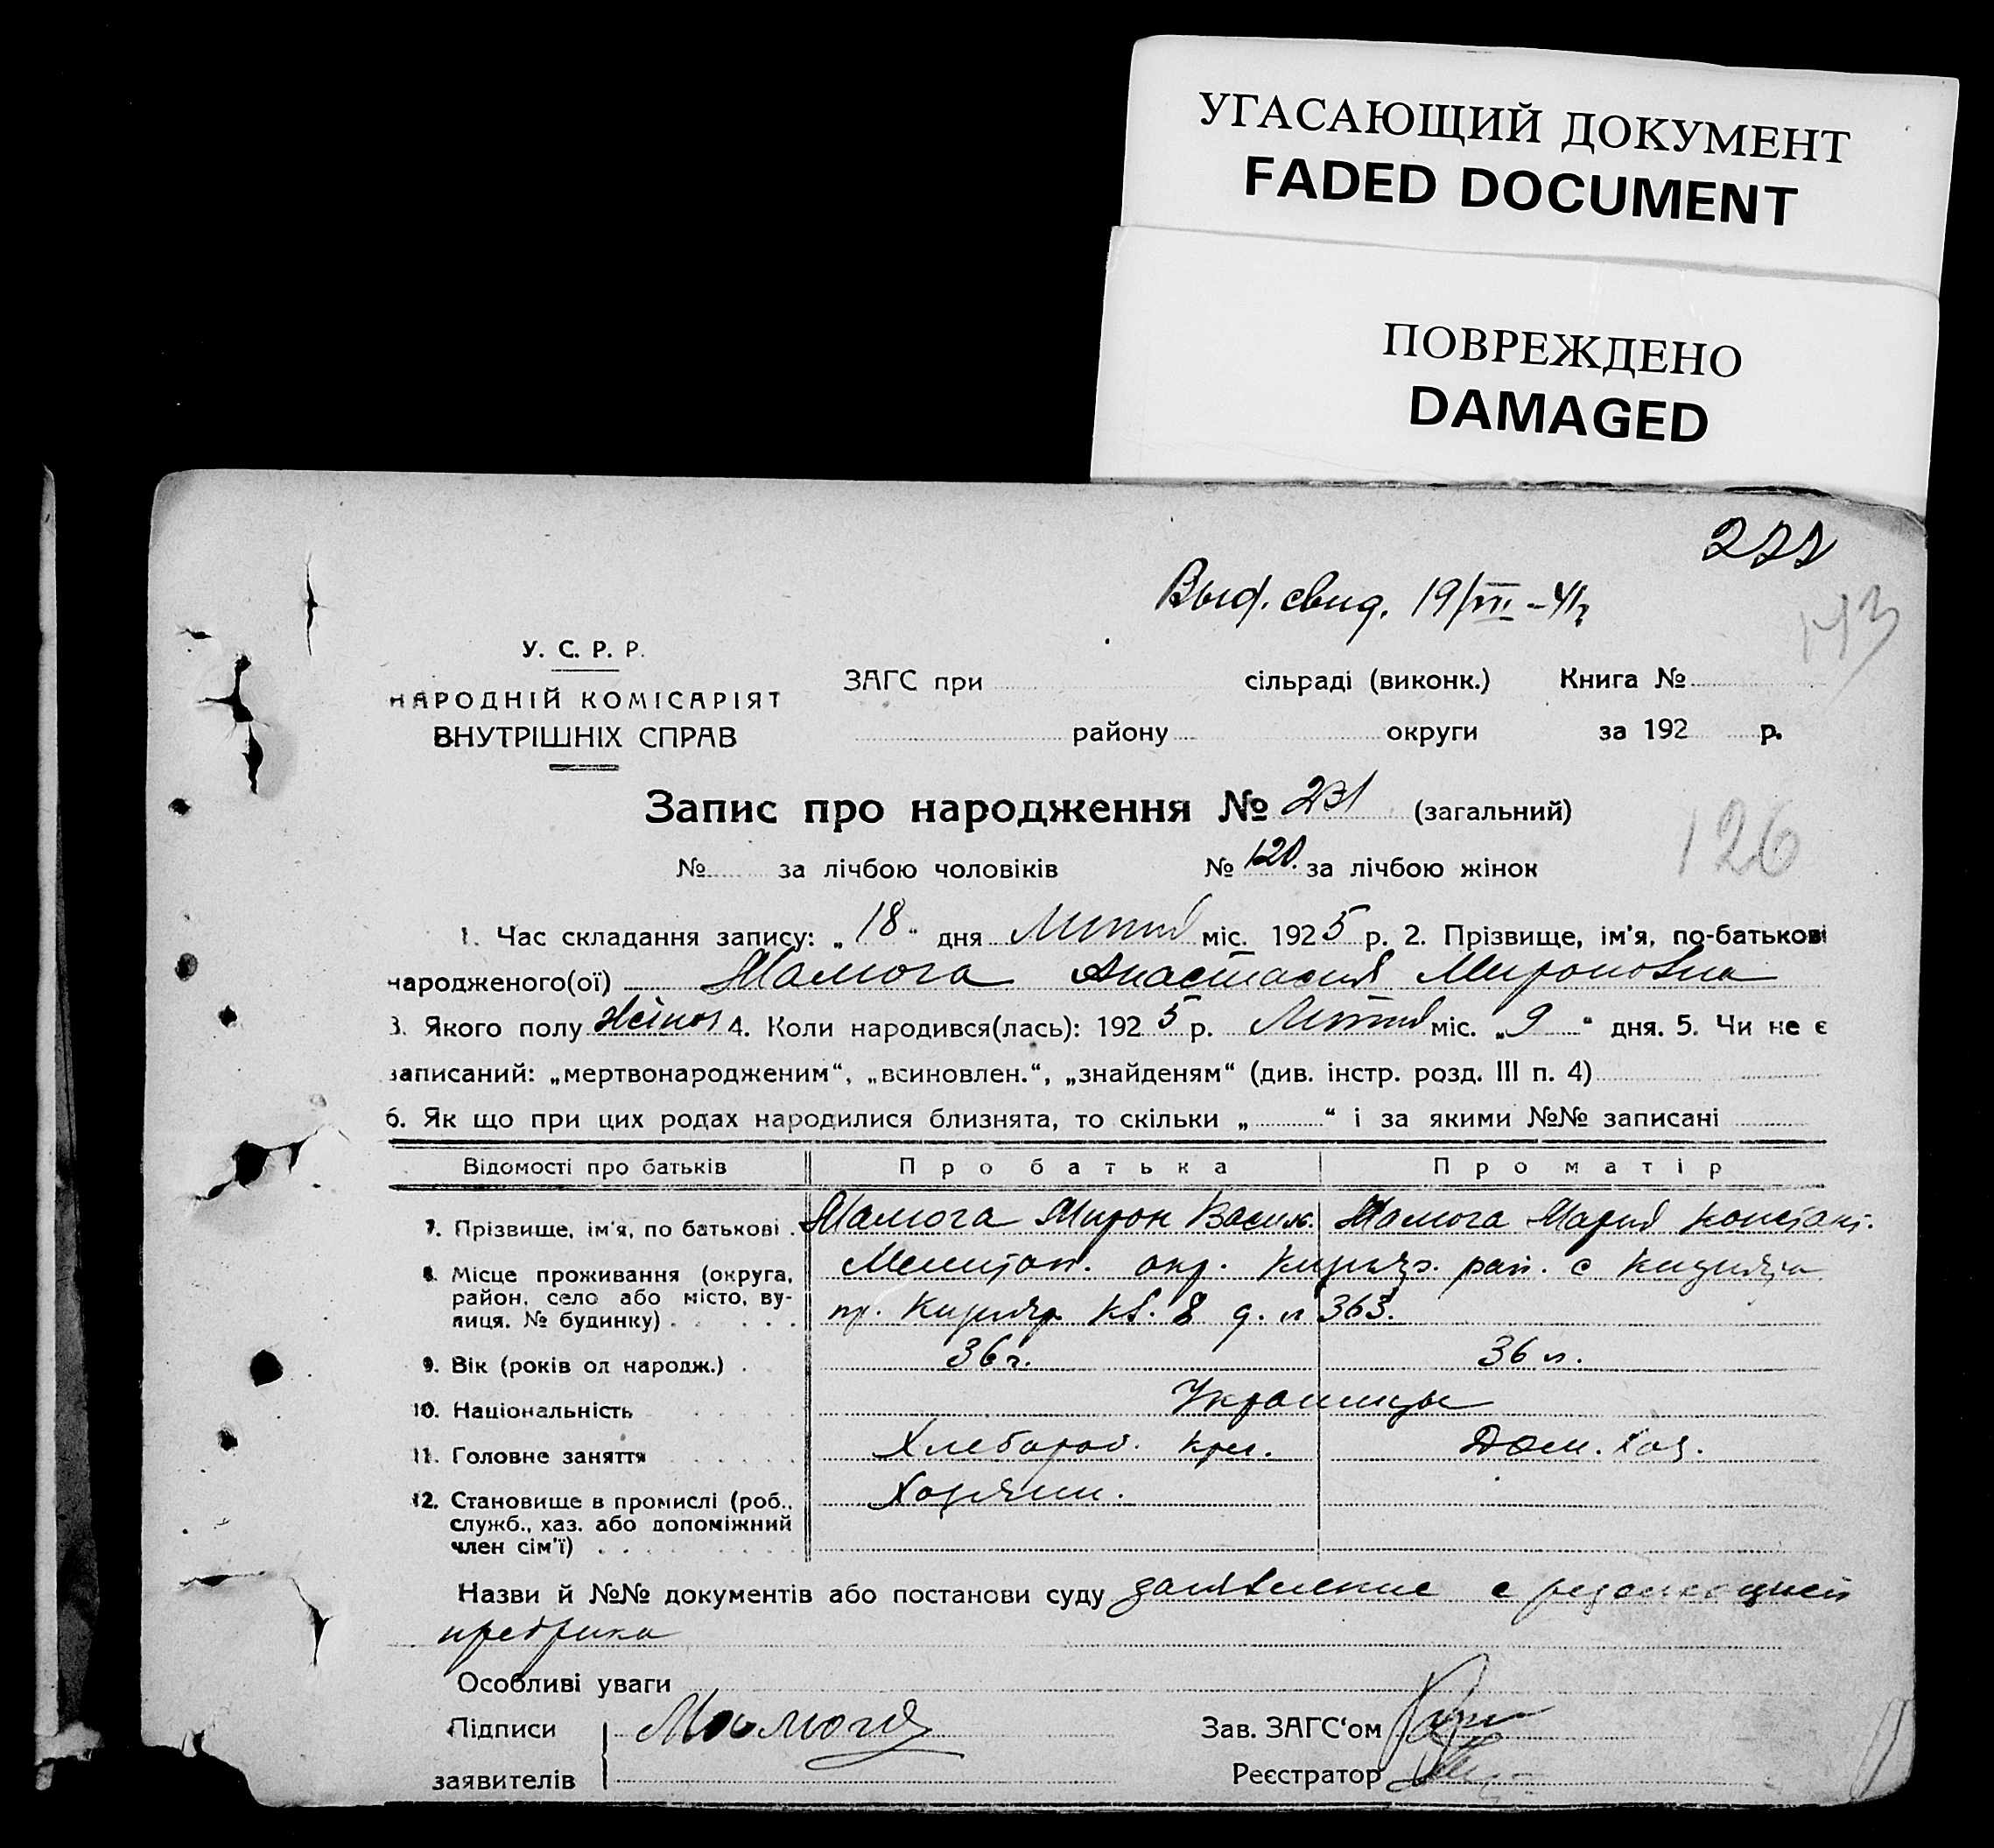 УГАСАЮЩИЙ ДОКУМЕНТ
FADED DOCUMENT
ПОВРЕЖДЕНО
DAMAGED
Выд. свид. 19/VII-41г
113
У. С. Р. Р.
НАРОДНІЙ КОМІСАРІЯТ
ВНУТРІШНІХ СПРАВ
ЗАГС при сільраді (виконк.) Книга №
району округи за 192 р.
Запис про народження № 231 (загальний)
126
№ за лічбою чоловіків № 120. за лічбою жінок
1. Час складання запису: „18" дня міс. 1925 р. 2. Прізвище, ім'я, по-батькові
народженого(ої) Мамога Анастасия Мироновна
3. Якого полу жіноч 4. Коли народився(лась): 1925 р. міс. „9" дня. 5. Чи не є
записаний: „мертвонародженим“, „всиновлен.“, „знайденям“ (див. інстр. розд. III п. 4)
6. Як що при цих родах народилися близнята, то скільки „ “ і за якими №№ записані
Відомості про батьків Про батька Про матір
7. Прізвище, ім'я, по батькові . Мамога Мирон Васил. Мамога Мария Констант.
8. Місце проживання (округа, район, село або місто, вулиця, № будинку) . Мелитоп. окр. рай. с
кв. 8 д. № 363.
9. Вік (років од народж.) . 36 г. 36 л.
10. Національність Украинцы
11. Головне заняття Хлебороб. Дом. хоз.
12. Становище в промислі (роб., Хозяин.
служб., хаз. або допоміжний
член сім'ї) . . .
Назви й №№ документів або постанови суду заявление с резолюцией
предрика
Особливі уваги
Підписи Мамога Зав. ЗАГС'ом
заявителів Реєстратор